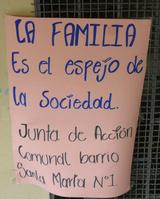 LA FAMILIA
Es el espejo de
la Sociedad.
Junta de Acción
Comunal barrio
Santa Marta Nº1.